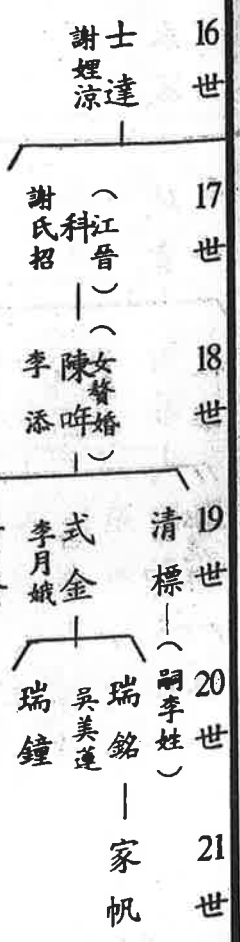 16世
士達
謝娌涼
17世
（江晉）
科
謝氏招
18世
（女贅婚）
陳哖
李添
19世
清標
式金
李月娥
20世
（嗣李姓）
瑞銘
吳美蓮
瑞鐘
21世
家帆